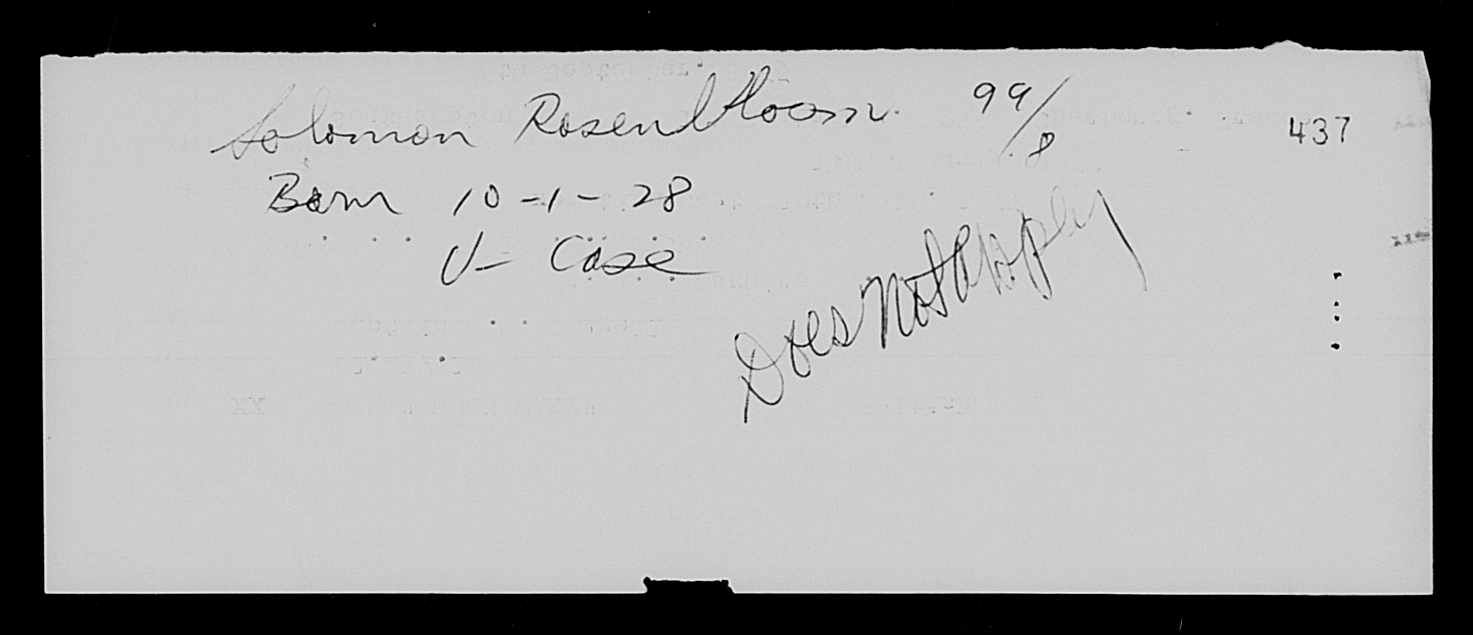 Solomon Rosenbloom. 99/8
437
Born 10-1-28
U- Case
Does Not Apply